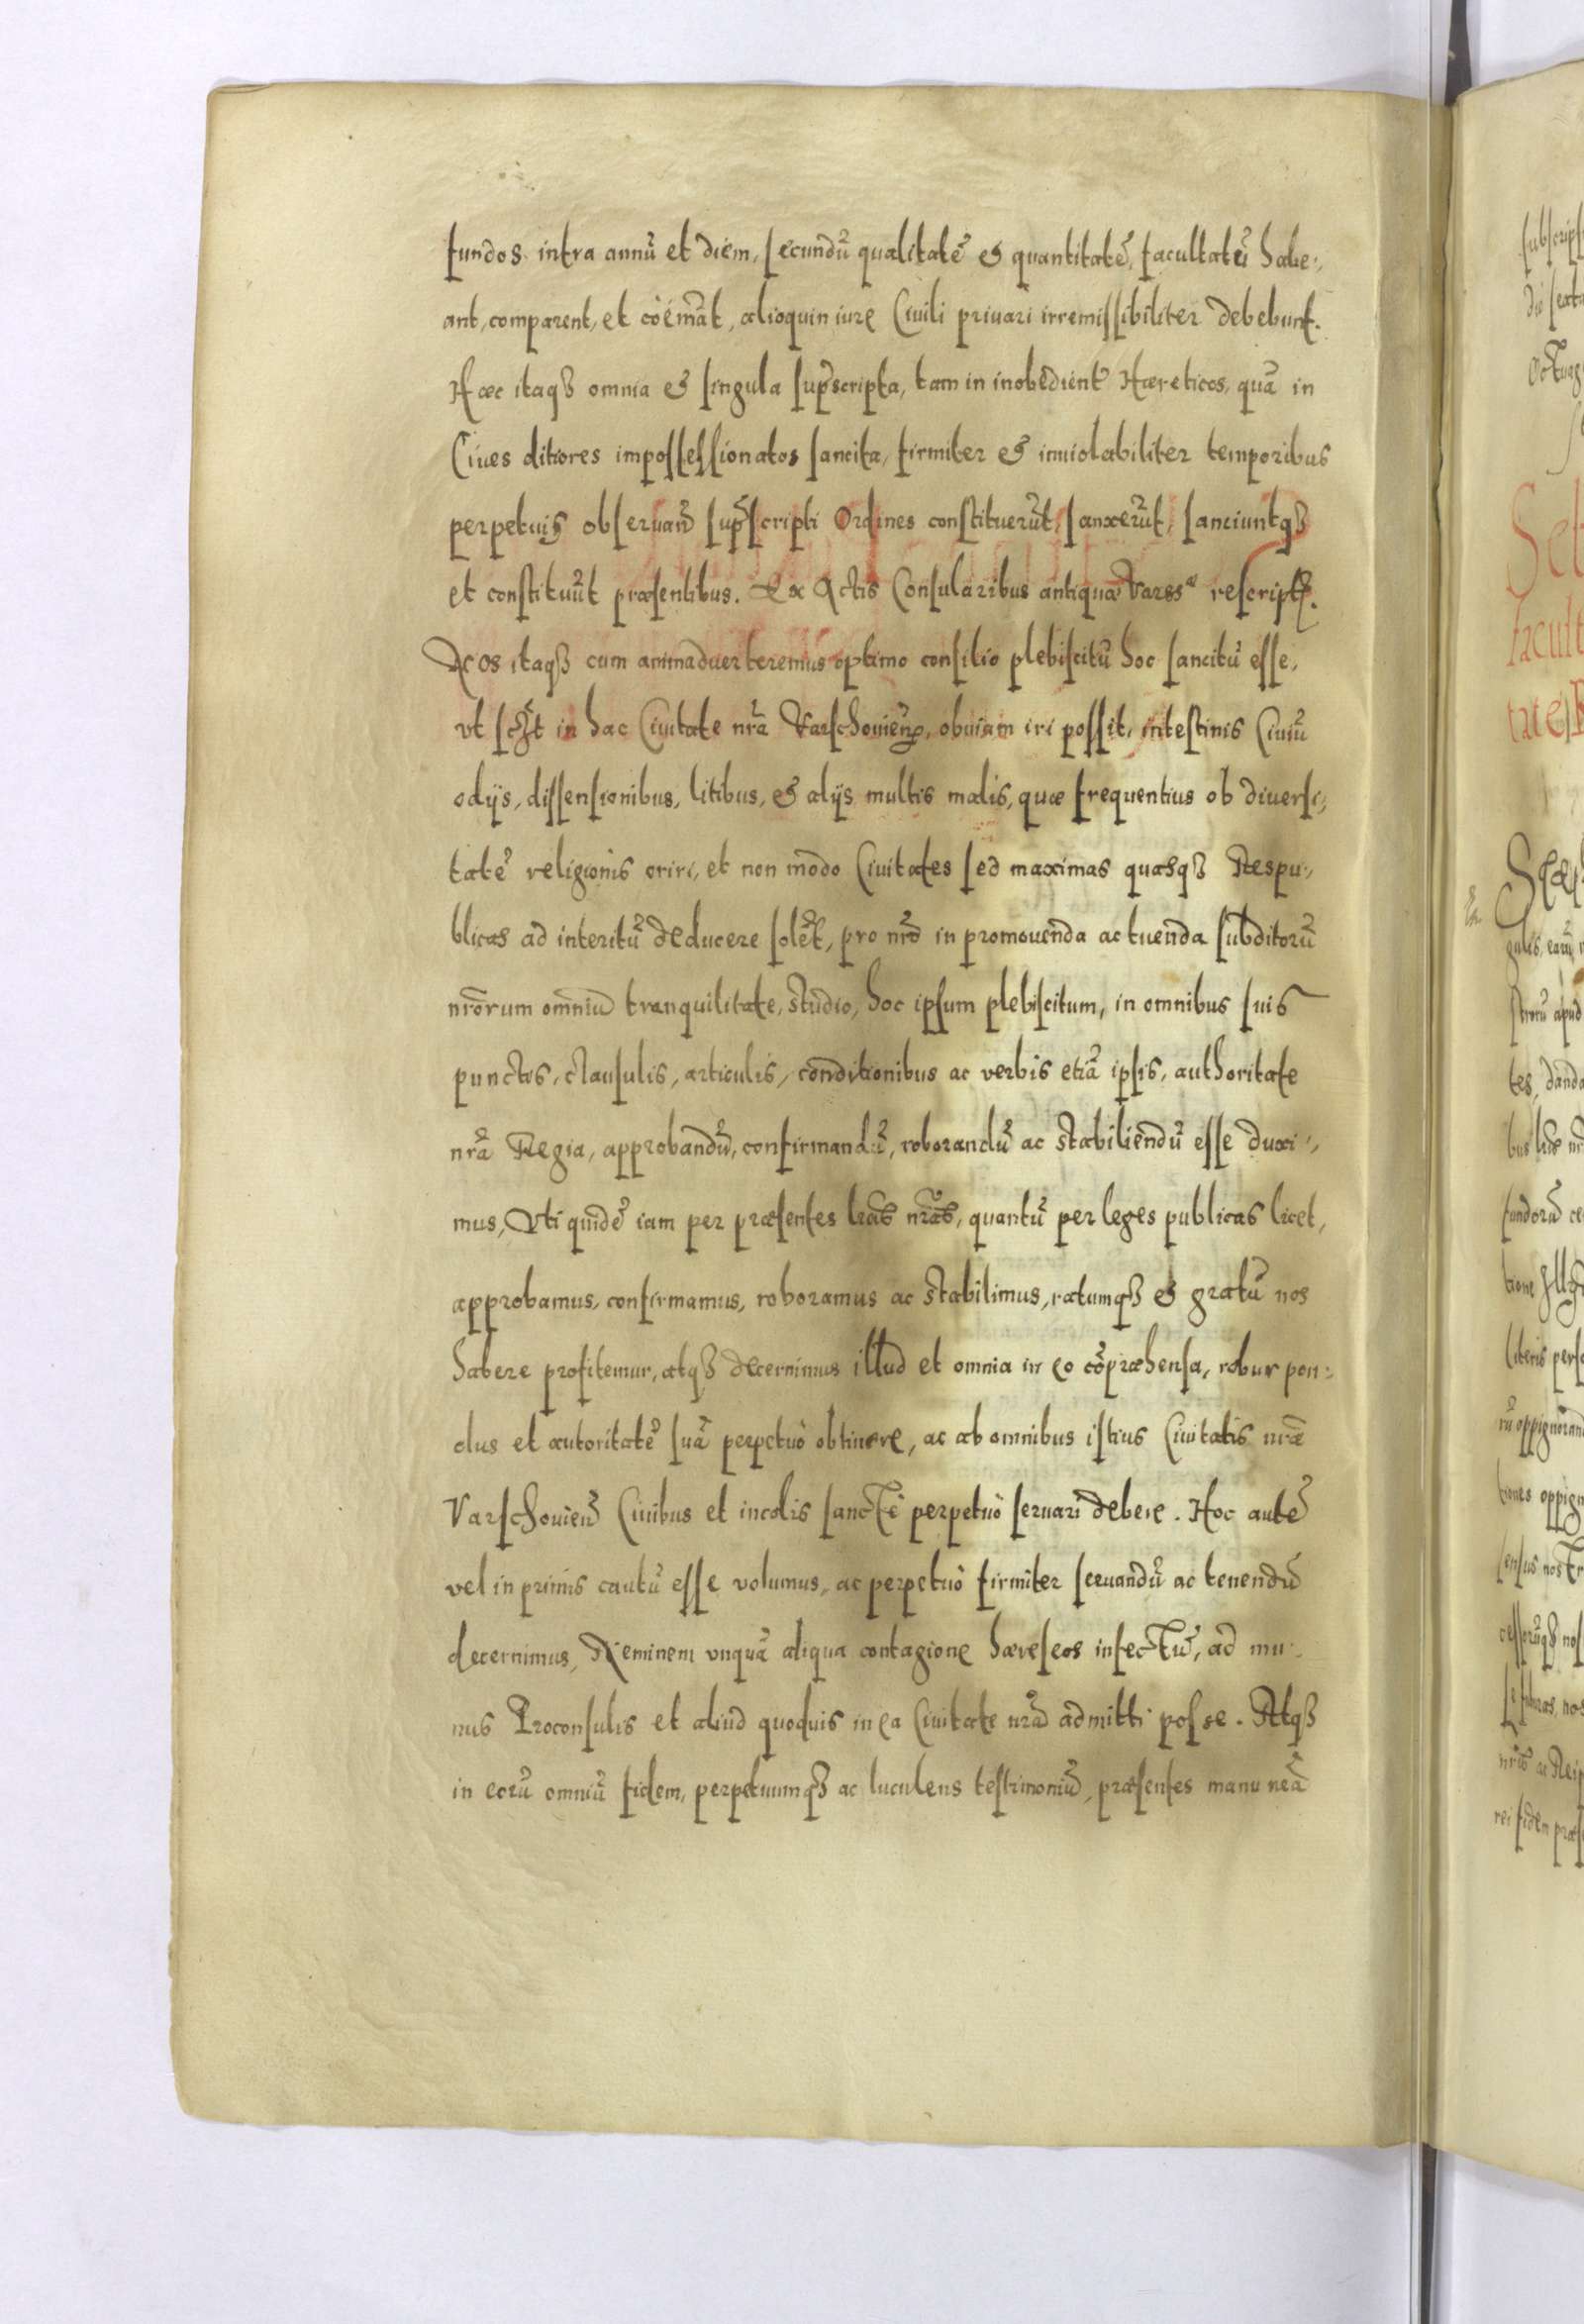 fundos intra annū et diem, secundū qualitatē & quantitatē, facultatū habe-,
ant, comparent, et coëmāt, alioquin iure Ciuili priuari irremissibiliter debebunt.
Hæc itaqȝ omnia & singula suꝑscripta, tam in inobedientꝭ Hæreticos, quā in
Ciues ditiores impossessionatos sancita, firmiter & inuiolabiliter temporibus
perpetuis obseruañ suꝑscripti Ordines constituerūt, sanxerūt, sanciuntqȝ
et constituūt præsentibus. Ex Actis Consularibus antiquæ Varsˢᵉ rescriptꝭ.
Nos itaqȝ cum animaduerteremus optimo consilio plebiscitū hoc sancitū esse,
vt sclꝫt in hac Ciuitate nr̄a Varschouieñ, obuiam iri possit, intestinis Ciuiū
odijs, dissensionibus, litibus, & alijs multis malis, quæ frequentius ob diuersi-,
tatē religionis oriri, et non modo Ciuitates sed maximas quasqȝ Respu-,
blicas ad interitū deducere solēt, pro nr̄o in promouenda ac tuenda subditorū
nr̄orum omniū tranquilitate, studio, hoc ipsum plebiscitum, in omnibus suis
punctis, clausulis, articulis, conditionibus ac verbis etiā ipsis, authoritate
nr̄a Regia, approbandū, confirmandū, roborandū ac stabiliendū esse duxi-,
mus, Vti quidē iam per præsentes lr̄as nr̄as, quantū per leges publicas licet,
approbamus, confirmamus, roboramus ac stabilimus, ratumqȝ & gratū nos
habere profitemur, atqȝ decernimus illud et omnia in eo cōpræhensa, robur pon-
dus et autoritatē suā perpetuò obtinere, ac ab omnibus istius Ciuitatis nr̄æ
Varschouieñ Ciuibus et incolis sanctè perpetuò seruari debere. Hoc autē
vel in primis cautū esse volumus, ac perpetuò firmiter seruandū ac tenendū
decernimus, Neminem vnquā aliqua contagione hæreseos infectū, ad mu-
nus Proconsulis et aliud quoduis in ea Ciuitate nr̄a admitti posse. Atqȝ
in eorū omniū fidem, perpetuumqȝ ac luculens testimoniū, præsentes manu nr̄a